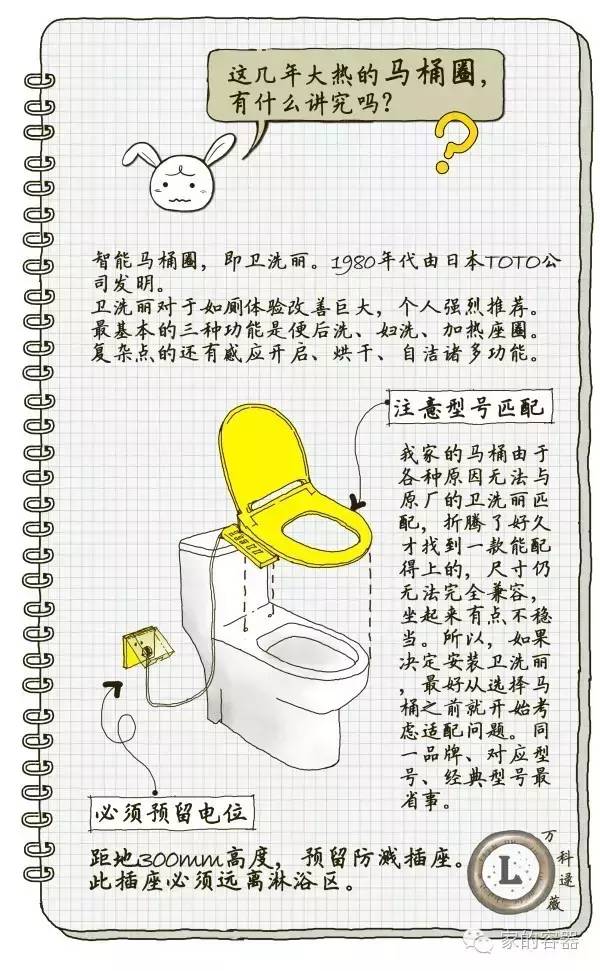 这几年大热的马桶圈，
有什么讲究吗？
智能马桶圈，即卫洗丽。1980年代由日本TOTO公
司发明。
卫洗丽对于如厕体验改善巨大，个人强烈推荐。
最基本的三种功能是便后洗、妇洗、加热座圈。
复杂点的还有感应开启、烘干、自洁诸多功能。
注意型号匹配
我家的马桶由于
各种原因无法与
原厂的卫洗丽匹
配，折腾了好久
才找到一款能配
得上的，尺寸仍
无法完全兼容，
坐起来有点不稳
当。所以，如果
决定安装卫洗丽
，最好从选择马
桶之前就开始考
虑适配问题。同
一品牌、对应型
号、经典型号最
省事。
必须预留电位
距地300mm高度，预留防溅插座。
此插座必须远离淋浴区。
L
万科逯薇
家的容器